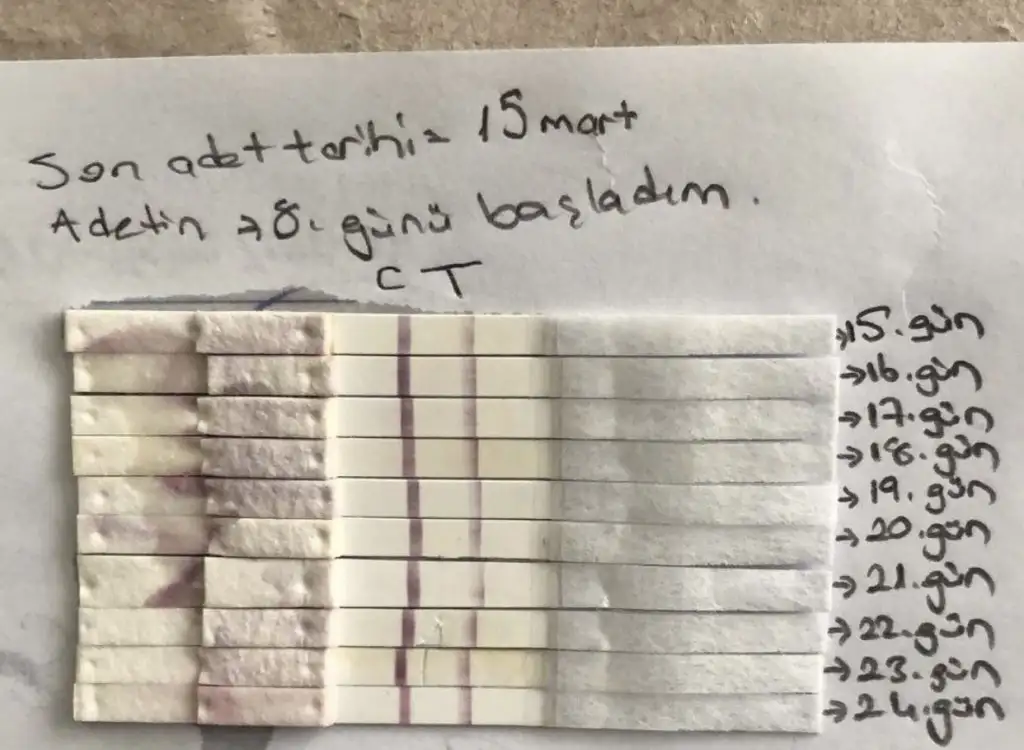 Son adet tarihi= 15 mart
Adetin → 8. günü başladım.
C T
→15.gün
→16.gün
→17.gün
→18.gün
→19.gün
→20.gün
→21.gün
→22.gün
→23.gün
→24.gün